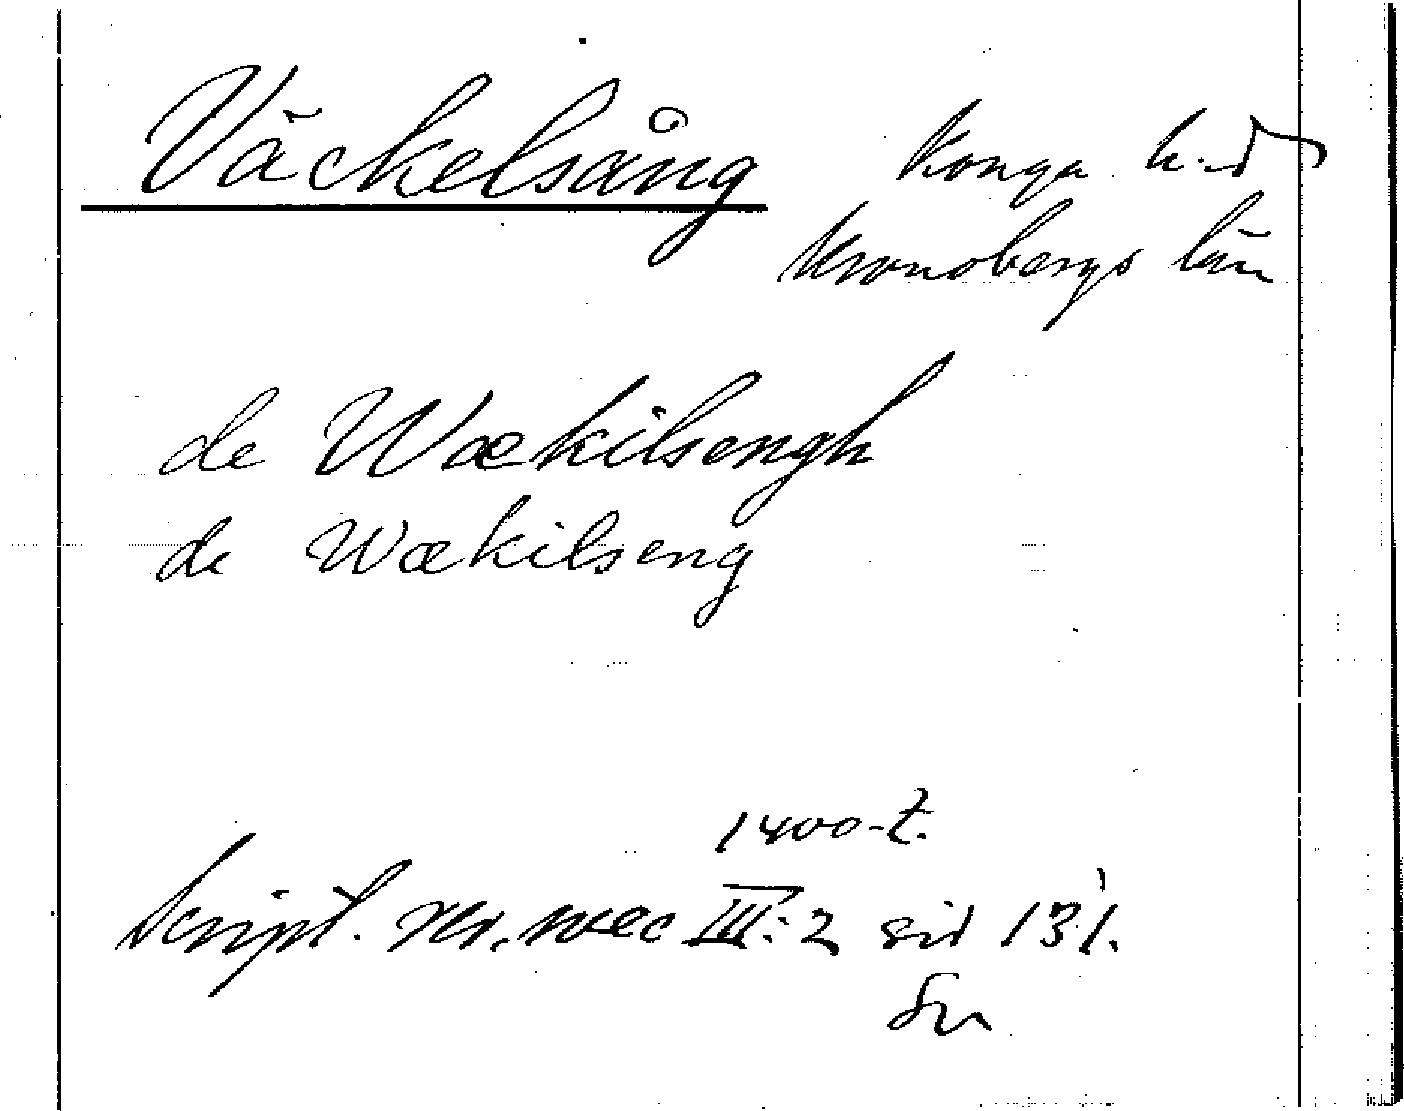 Väckelsång
Konga h-d
Kronobergs län
de Wækilsengh
de Wækilseng
1400-t.
Script. rer. svec III:2 sid 131.